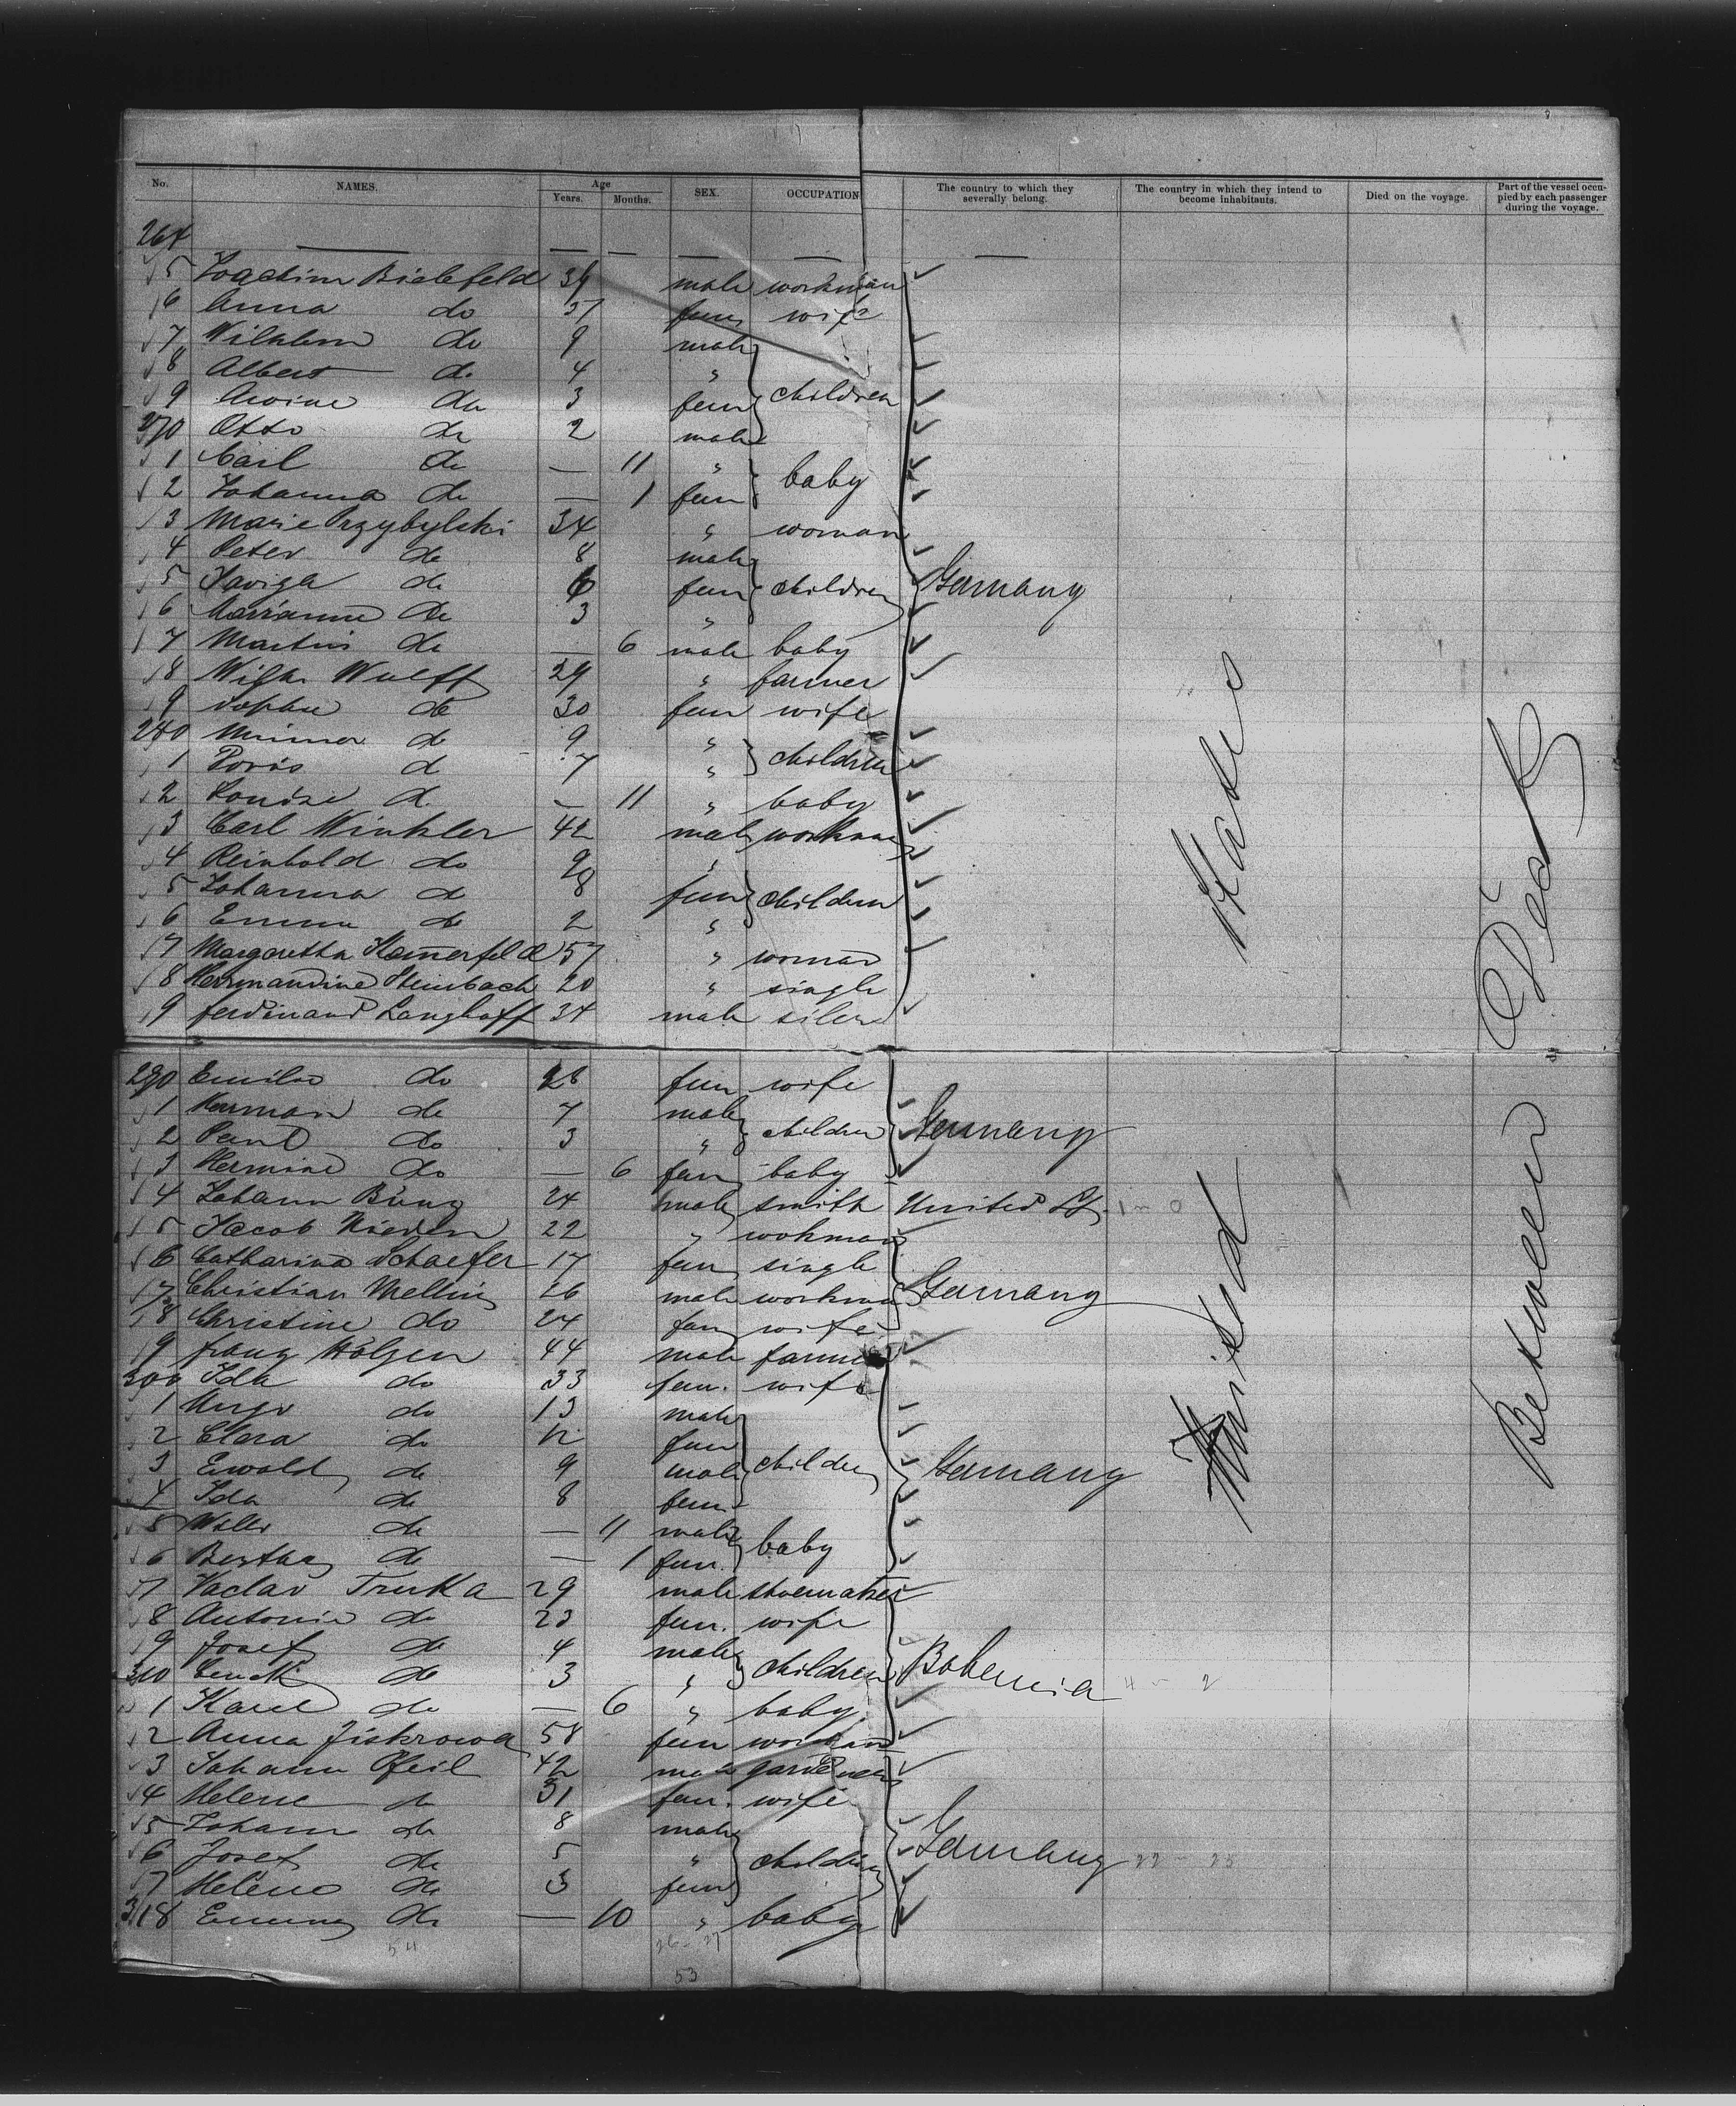 No. NAMES. Age Years. Months. SEX. OCCUPATION The country to which they severally belong. The country in which they intend to become inhabitants. Died on the voyage. Part of the vessel occupied by each passenger during the voyage.
264 — — — — — —
5 Joachim Bielefeld 39 male workman
6 Anna do 37 fem wife
7 Wilhelm do 9 male
8 Albert do 4 "
9 Alvine do 3 fem children
270 Otto do 2 male
1 Carl do — 11 "
2 Johanna do — 1 fem baby
3 Marie Przybylski 34 " woman
4 Peter do 8 male
5 Javiga do 6 fem children Germany
6 Marianne do 3 "
7 Martin do — 6 male baby
8 Wilh. Wulff 29 " farmer
9 Sophie do 30 fem wife
280 Minna do 9 "
1 Doris d 7 " children
2 Louise d. — 11 " baby
3 Carl Winkler 42 male workman
4 Reinhold do 9 "
5 Johanna do 8 fem children
6 Emma do 2 "
7 Margaretha 57 " woman
8 Hermandine Steinbach 20 " single
9 Ferdinand Langhoff 34 male
290 Emilie do 28 fem wife
1 Herman do 7 male
2 Paul do 3 " children Germany
3 Hermine do — 6 fem baby
4 Johann Büng 24 male smith United St.
5 Jacob 22 " workman
6 Catharina Schaefer 17 fem single
7 Christian Mellin 26 male workman Germany
8 Christine do 24 fem wife
9 Franz Hölzen 44 male farmer
300 Ida do 33 fem. wife
1 Hugo do 13 male
2 Clara do 11 fem
3 Ewald do 9 male children Germany
4 Ida do 8 fem
5 do — 11 male
6 Bertha do — 1 fem. baby
7 Vaclav Truka 29 male shoemaker
8 Antonie do 23 fem. wife
9 Josef do 4 male
310 do 3 " children Bohemia
1 Karel do — 6 " baby
2 Anna Jiskrowa 58 fem woman
3 Johann Pfeil 42 male gardener
4 Helene do 31 fem. wife
5 Johann do 8 male
6 Josef do 5 " children Germany 22 - 25
7 Helene do 3 fem
318 Emma do — 10 " baby
54 26-27
53
United States
Between Deck